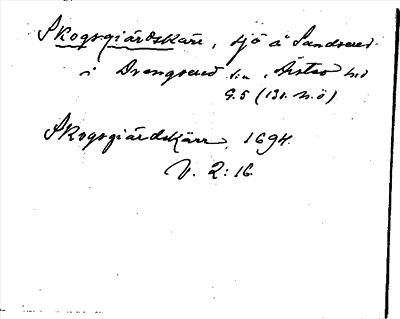 Skogsgiärdskärr, sjö å Sandsered
i Drengsered sn, Årstad hd
G.5 (131. N.Ö)
Skogsgiärdskärr, 1694.
V. 2:16